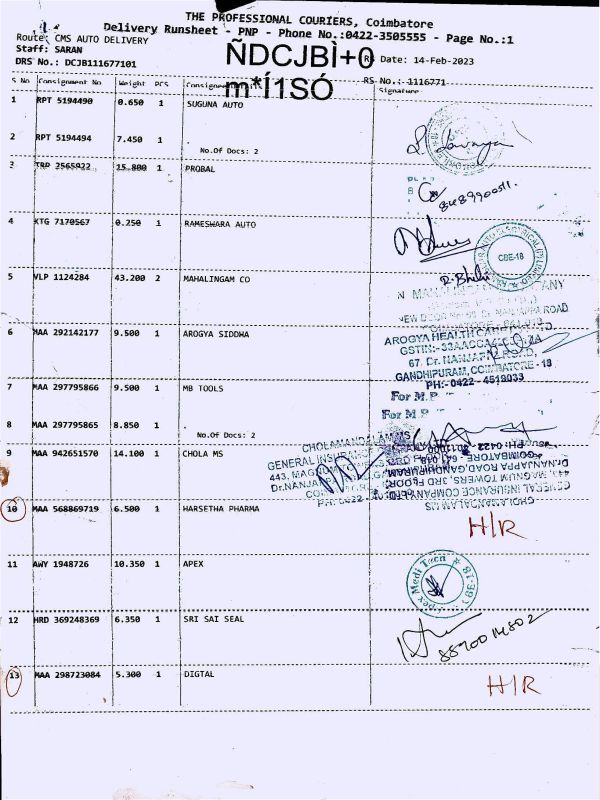 THE PROFESSIONAL COURIERS, Coimbatore
Delivery Runsheet - PNP - Phone No.:0422-3505555 - Page No.:1
Route: CMS AUTO DELIVERY
Staff: SARAN
ÑDCJBÌ+0
Date: 14-Feb-2023
DRS No.: DCJB111677101
m*Í1SÓ
RS No.: 1116771
S No Consignment No Weight PCS Signature
1 RPT 5194490 0.650 1 SUGUNA AUTO
2 RPT 5194494 7.450 1
No.Of Docs: 2
3 TRP 2565922 15.800 1 PROBAL
8489900511.
4 KTG 7170567 0.250 1 RAMESWARA AUTO
CBE-18
5 VLP 1124284 43.200 2 MAHALINGAM CO
6 MAA 292142177 9.500 1 AROGYA SIDDHA
AROGYA HEALTH
67, Dr. NANJAPPA ROAD,
GANDHIPURAM, COIMBATORE - 18
PH:-0422 - 4519033
7 MAA 297795866 9.500 1 MB TOOLS
For M.P
For M.P
8 MAA 297795865 8.850 1
No.Of Docs: 2
9 MAA 942651570 14.100 1 CHOLA MS
CHOLAMANDALAM MS
GENERAL INSURANCE
10 MAA 568869719 6.500 1 HARSETHA PHARMA
H/R
11 AWY 1948726 10.350 1 APEX
Apex Medi Tech
12 HRD 369248369 6.350 1 SRI SAI SEAL
13 MAA 298723084 5.300 1 DIGTAL
H/R